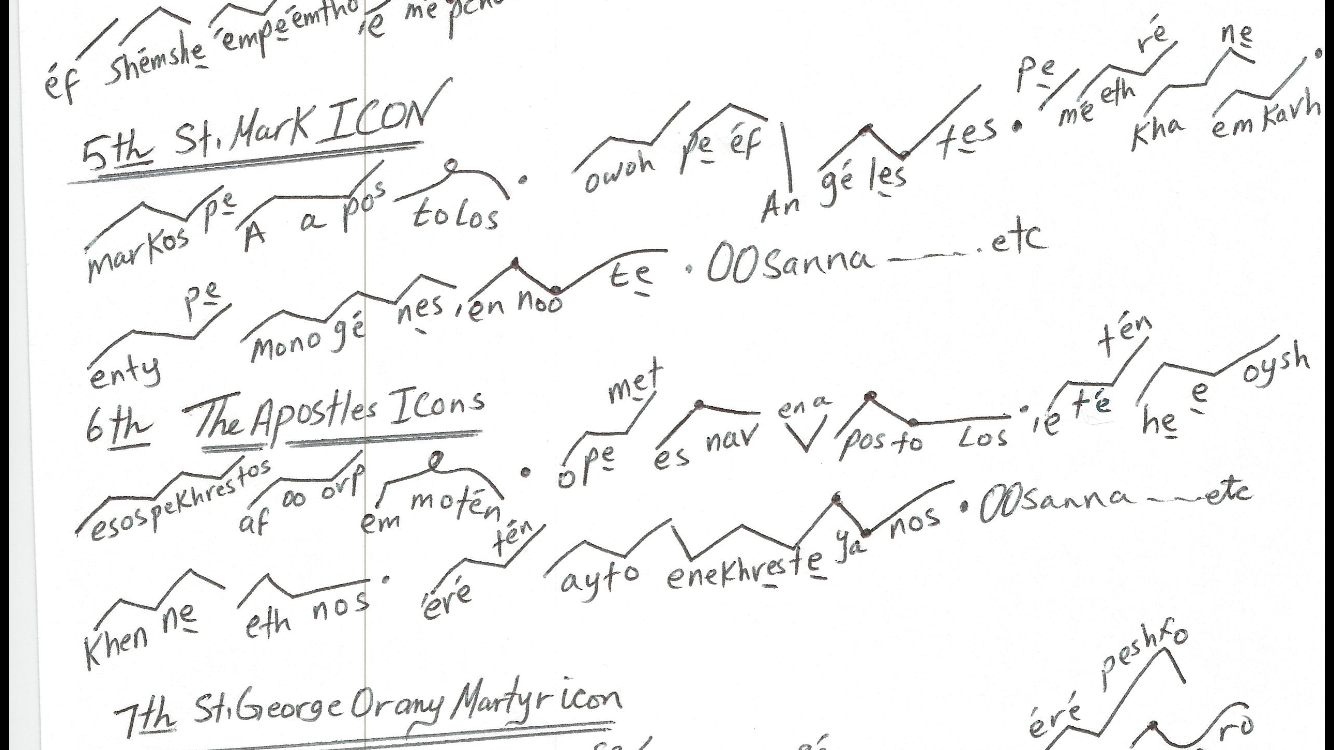 éf shémshe 'empeémtho 'e me
5th St. Mark ICON
markos pe A a pos tolos . owoh pe éf An gé les tes . pe méethré Kha ne em Kavh .
enty pe mono gé nes, 'en noo te . OOsanna ——— . etc
6th The Apostles Icons
esospekhrestos af oo orp em motén . ope met es nav ena posto Los . 'e té tén he e oysh
Khen ne eth nos . éré tén ayto enekhreste ya nos . OOsanna ——— etc
7th St. George Or any Martyr icon
éré peshfo
ro